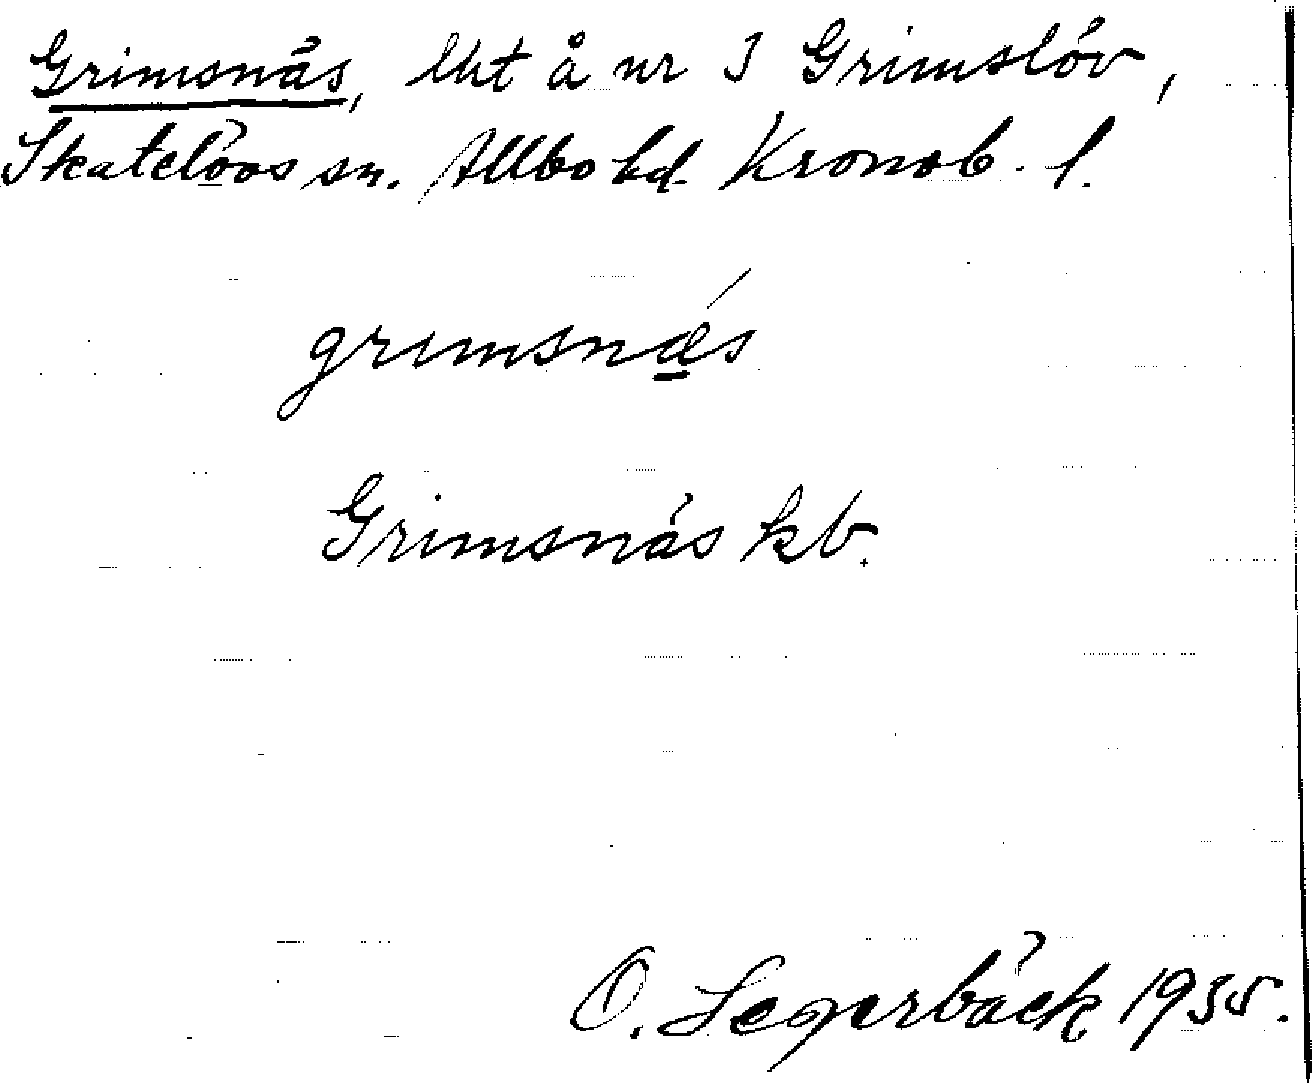 Grimsnäs, lht å nr 3 Grimslöv,
Skatelövs sn. Allbo hd. Kronob. l.
grimsnǽs
Grimsnäs kb.
O. Segerbäck 1935.